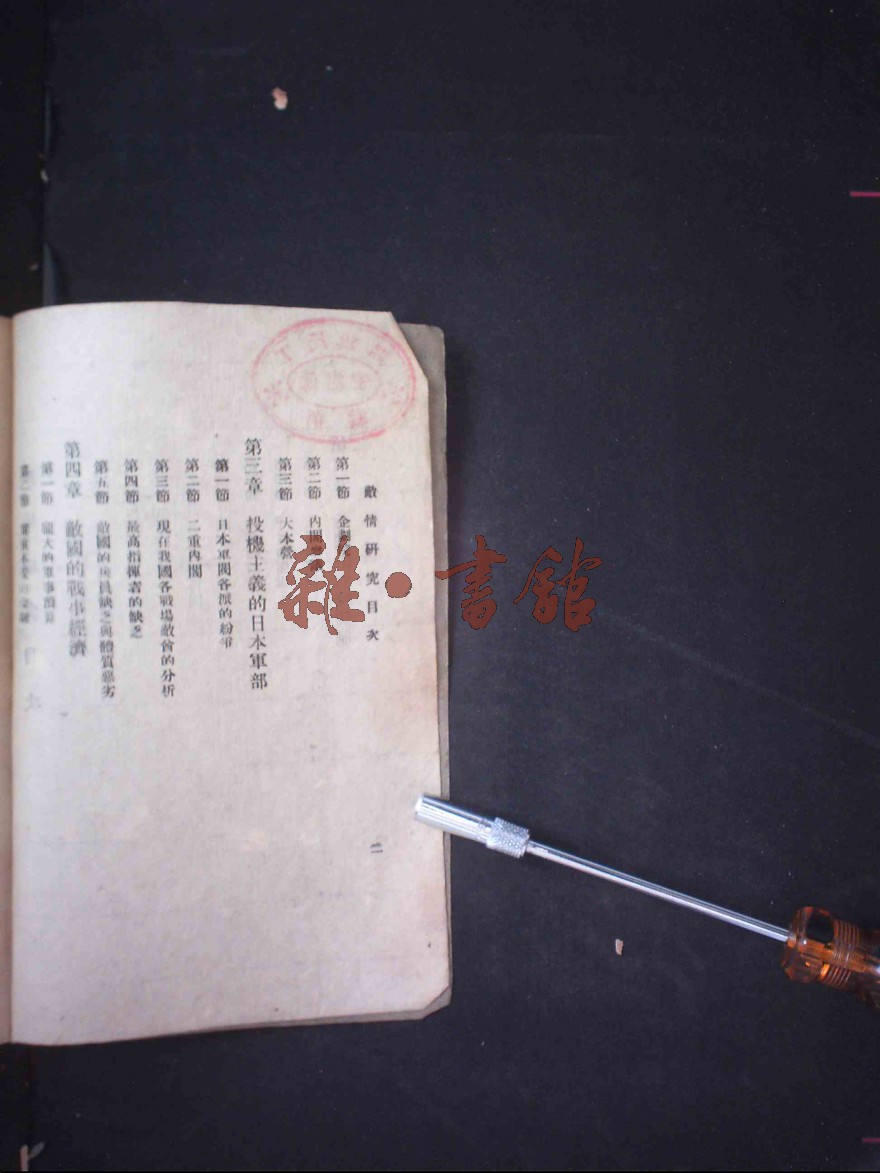 敵情研究目次
二
第一節 企劃
第二節 內閣
第三節 大本營
第三章 投機主義的日本軍部
第一節 日本軍閥各派的紛爭
第二節 二重內閣
第三節 現在我國各戰場敵酋的分析
第四節 最高指揮者的缺乏
第五節 敵國的兵員缺乏與體質惡劣
第四章 敵國的戰事經濟
第一節 龐大的軍事預算
第二節
雜·書館